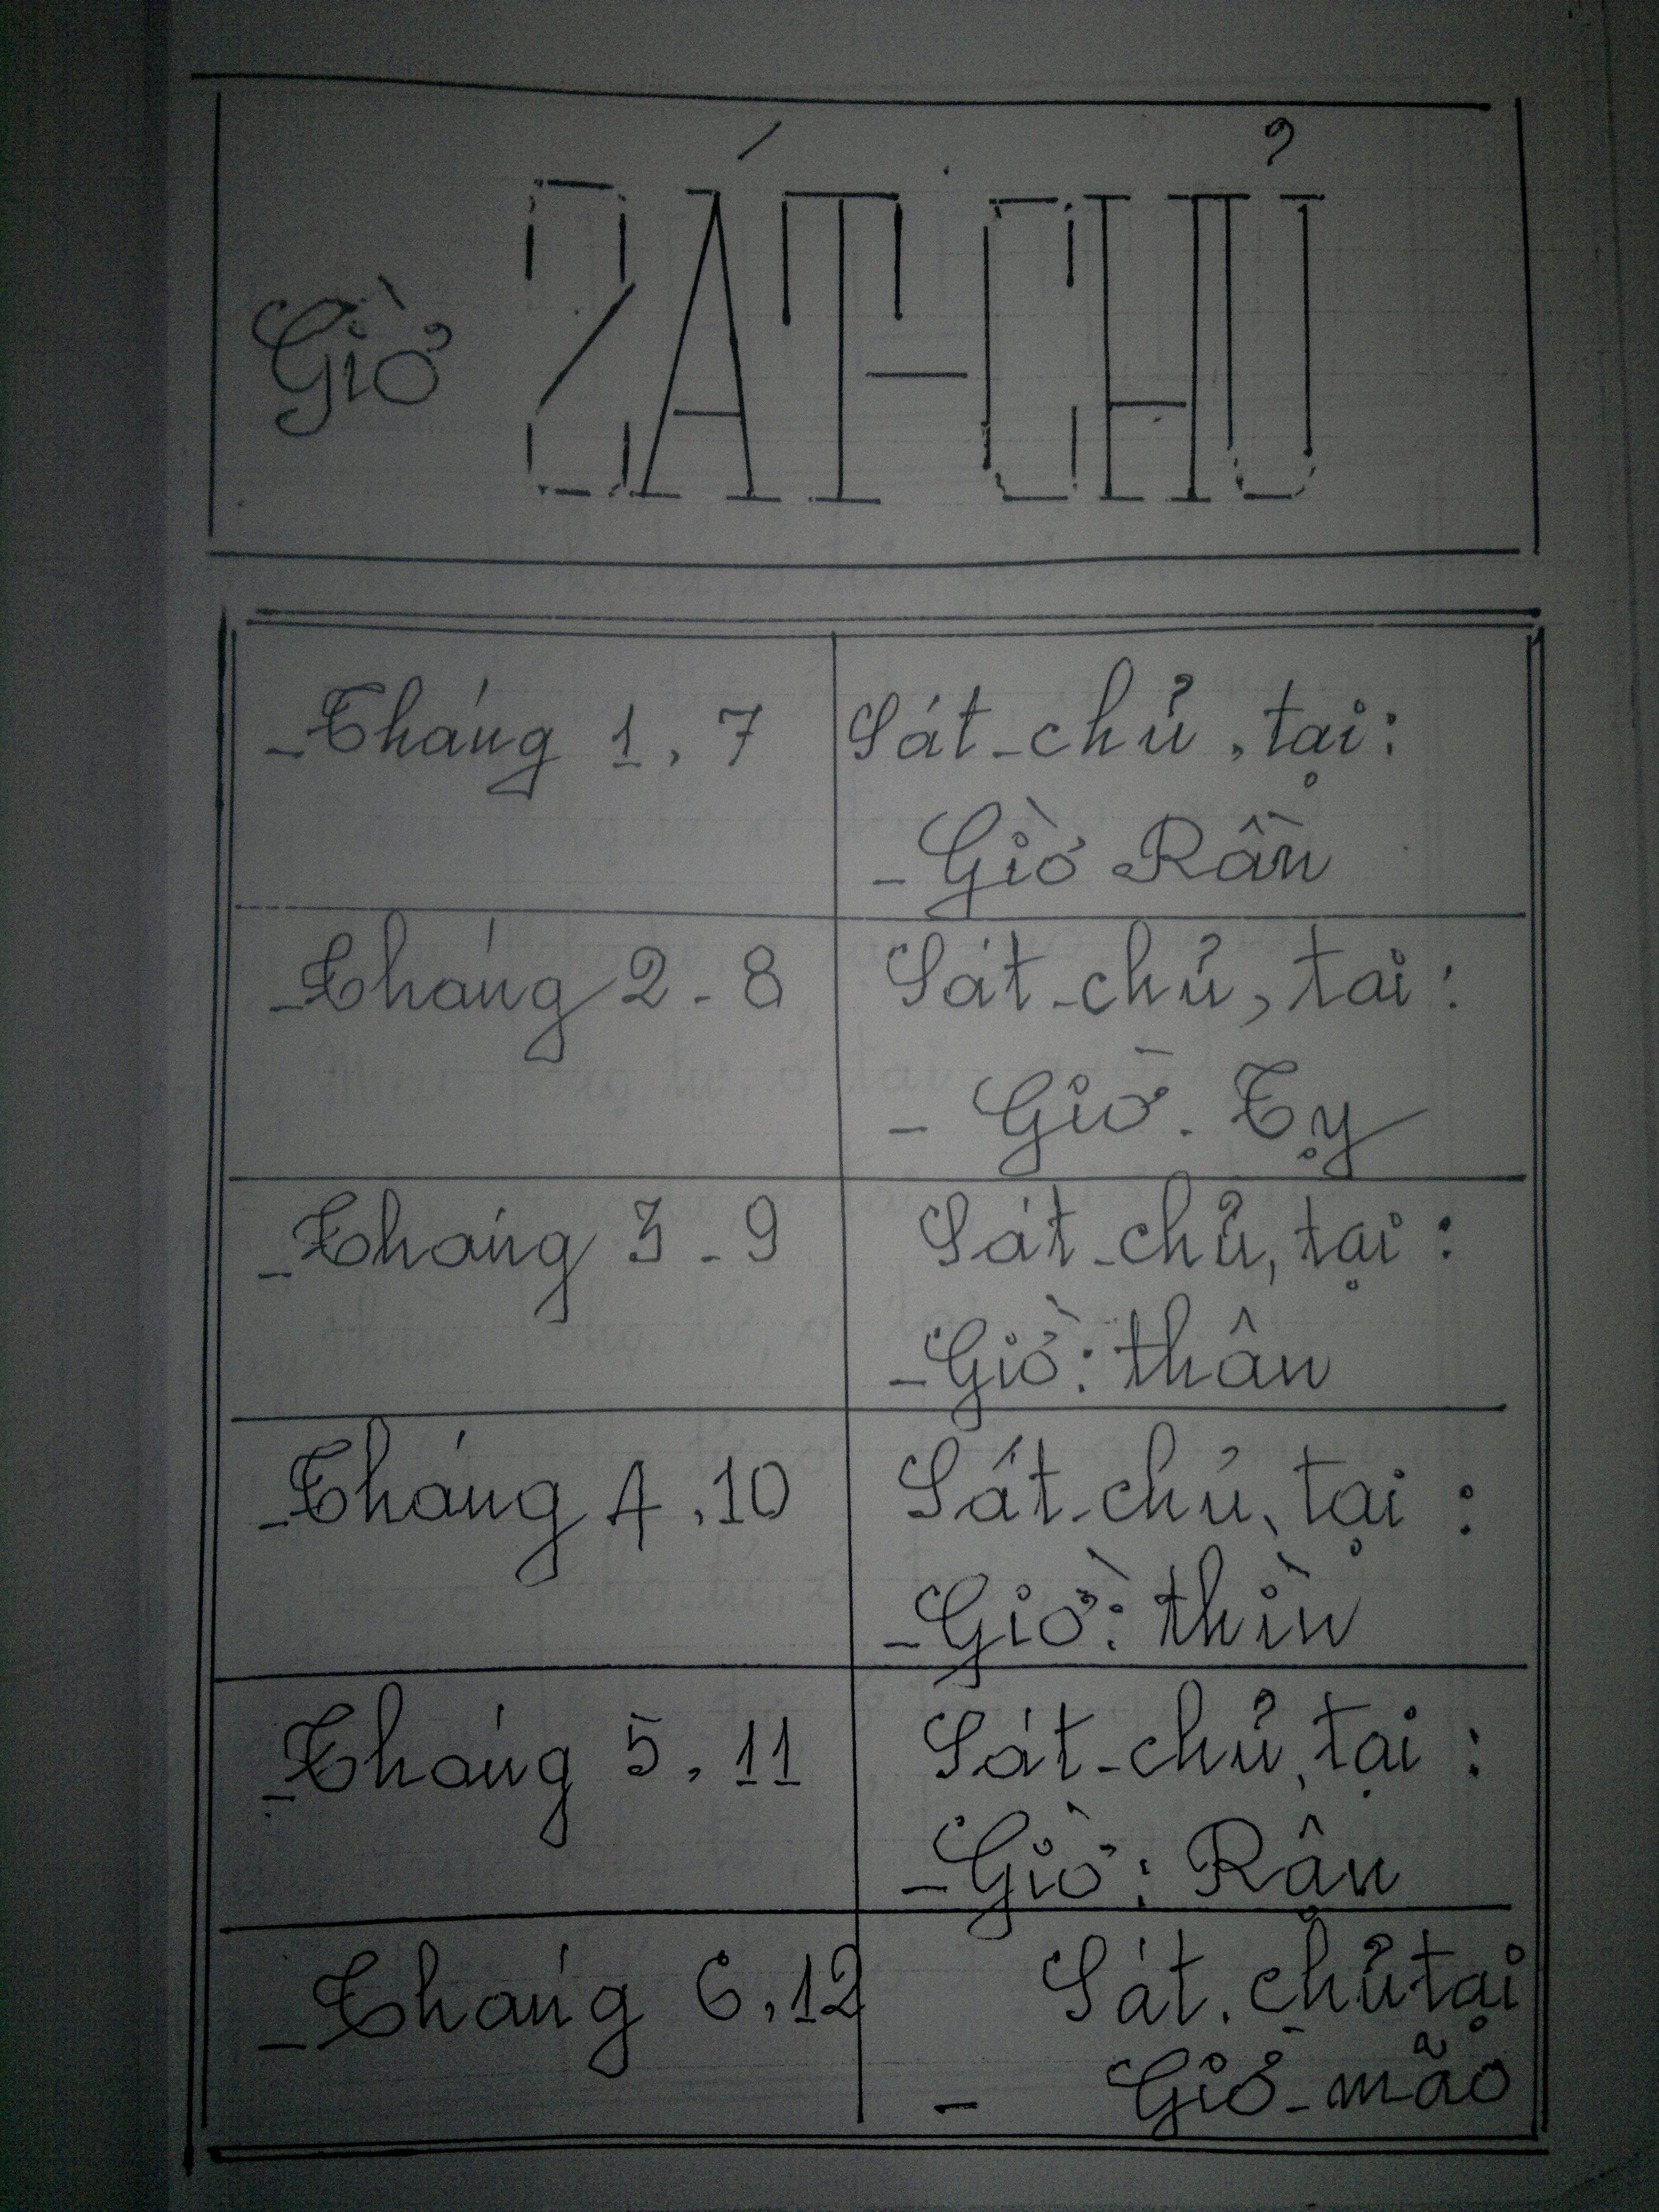 Giờ SÁT-CHỦ
-Tháng 1, 7
Sát-chủ, tại:
-Giờ Rần
-Tháng 2-8
Sát-chủ, tai:
- Giờ. Tỵ
-Tháng 3-9
Sát-chủ, tại:
-Giờ: thân
-Tháng 4, 10
Sát-chủ, tại:
-Giờ: thìn
-Tháng 5, 11
Sát-chủ, tại:
-Giờ: Rậu
-Tháng 6, 12
Sát. chủ tại
- Giờ-mão